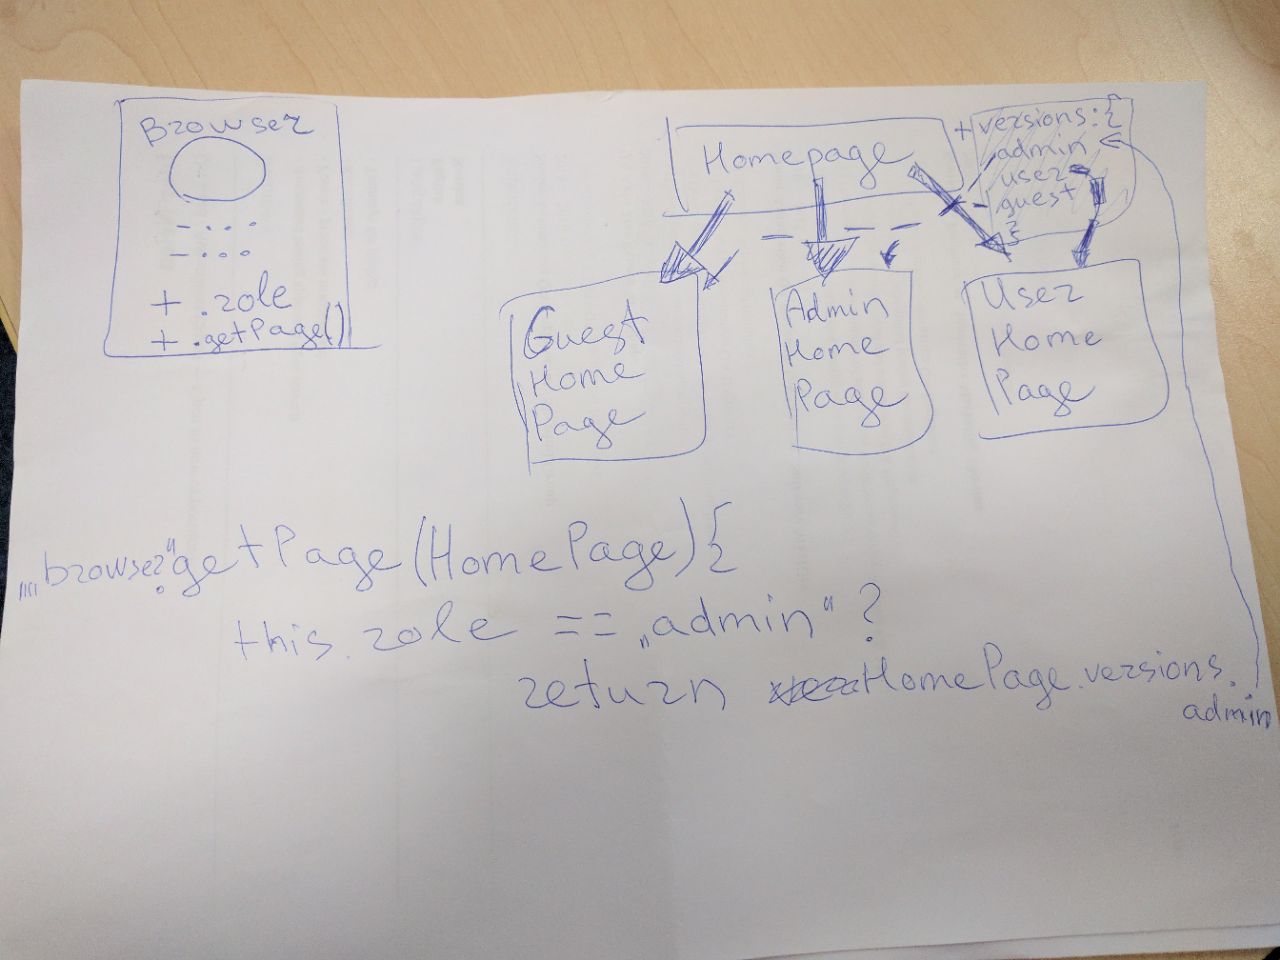 Browser
+ .role
+ .getPage()
Homepage
+ versions: {
admin
user
guest
}
Guest
Home
Page
Admin
Home
Page
User
Home
Page
„„browser".getPage(HomePage){
this.role == „admin“?
return HomePage.versions.
admin